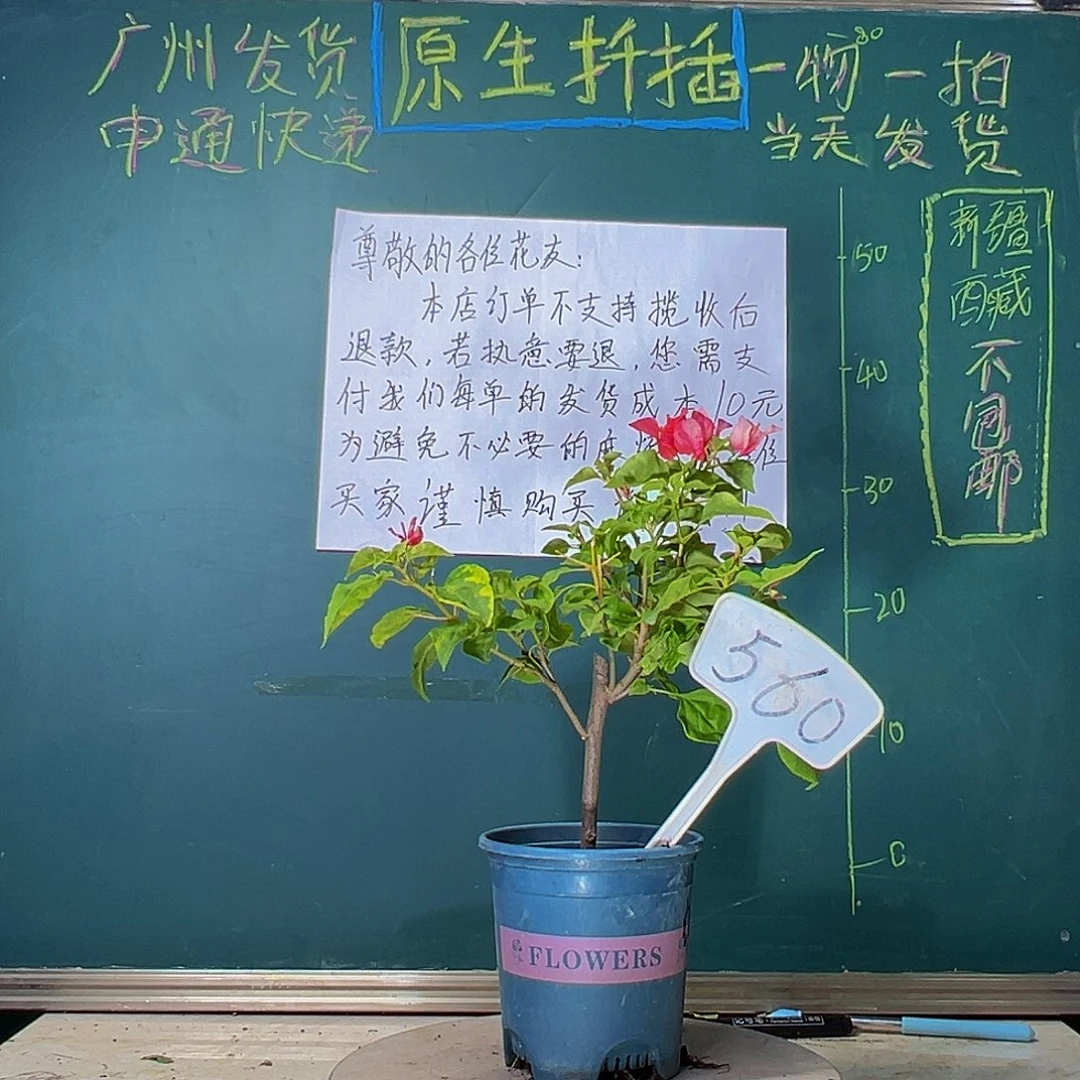 广州发货
申通快递
原生扦插
一物一拍
当天发货
80
尊敬的各位花友:
本店订单不支持揽收后
退款,若执意要退,您需支
付我们每单的发货成本10元
为避免不必要的麻 位
买家谨慎购买
50
40
30
20
10
0
新疆
西藏
不
包
邮
560
FLOWERS